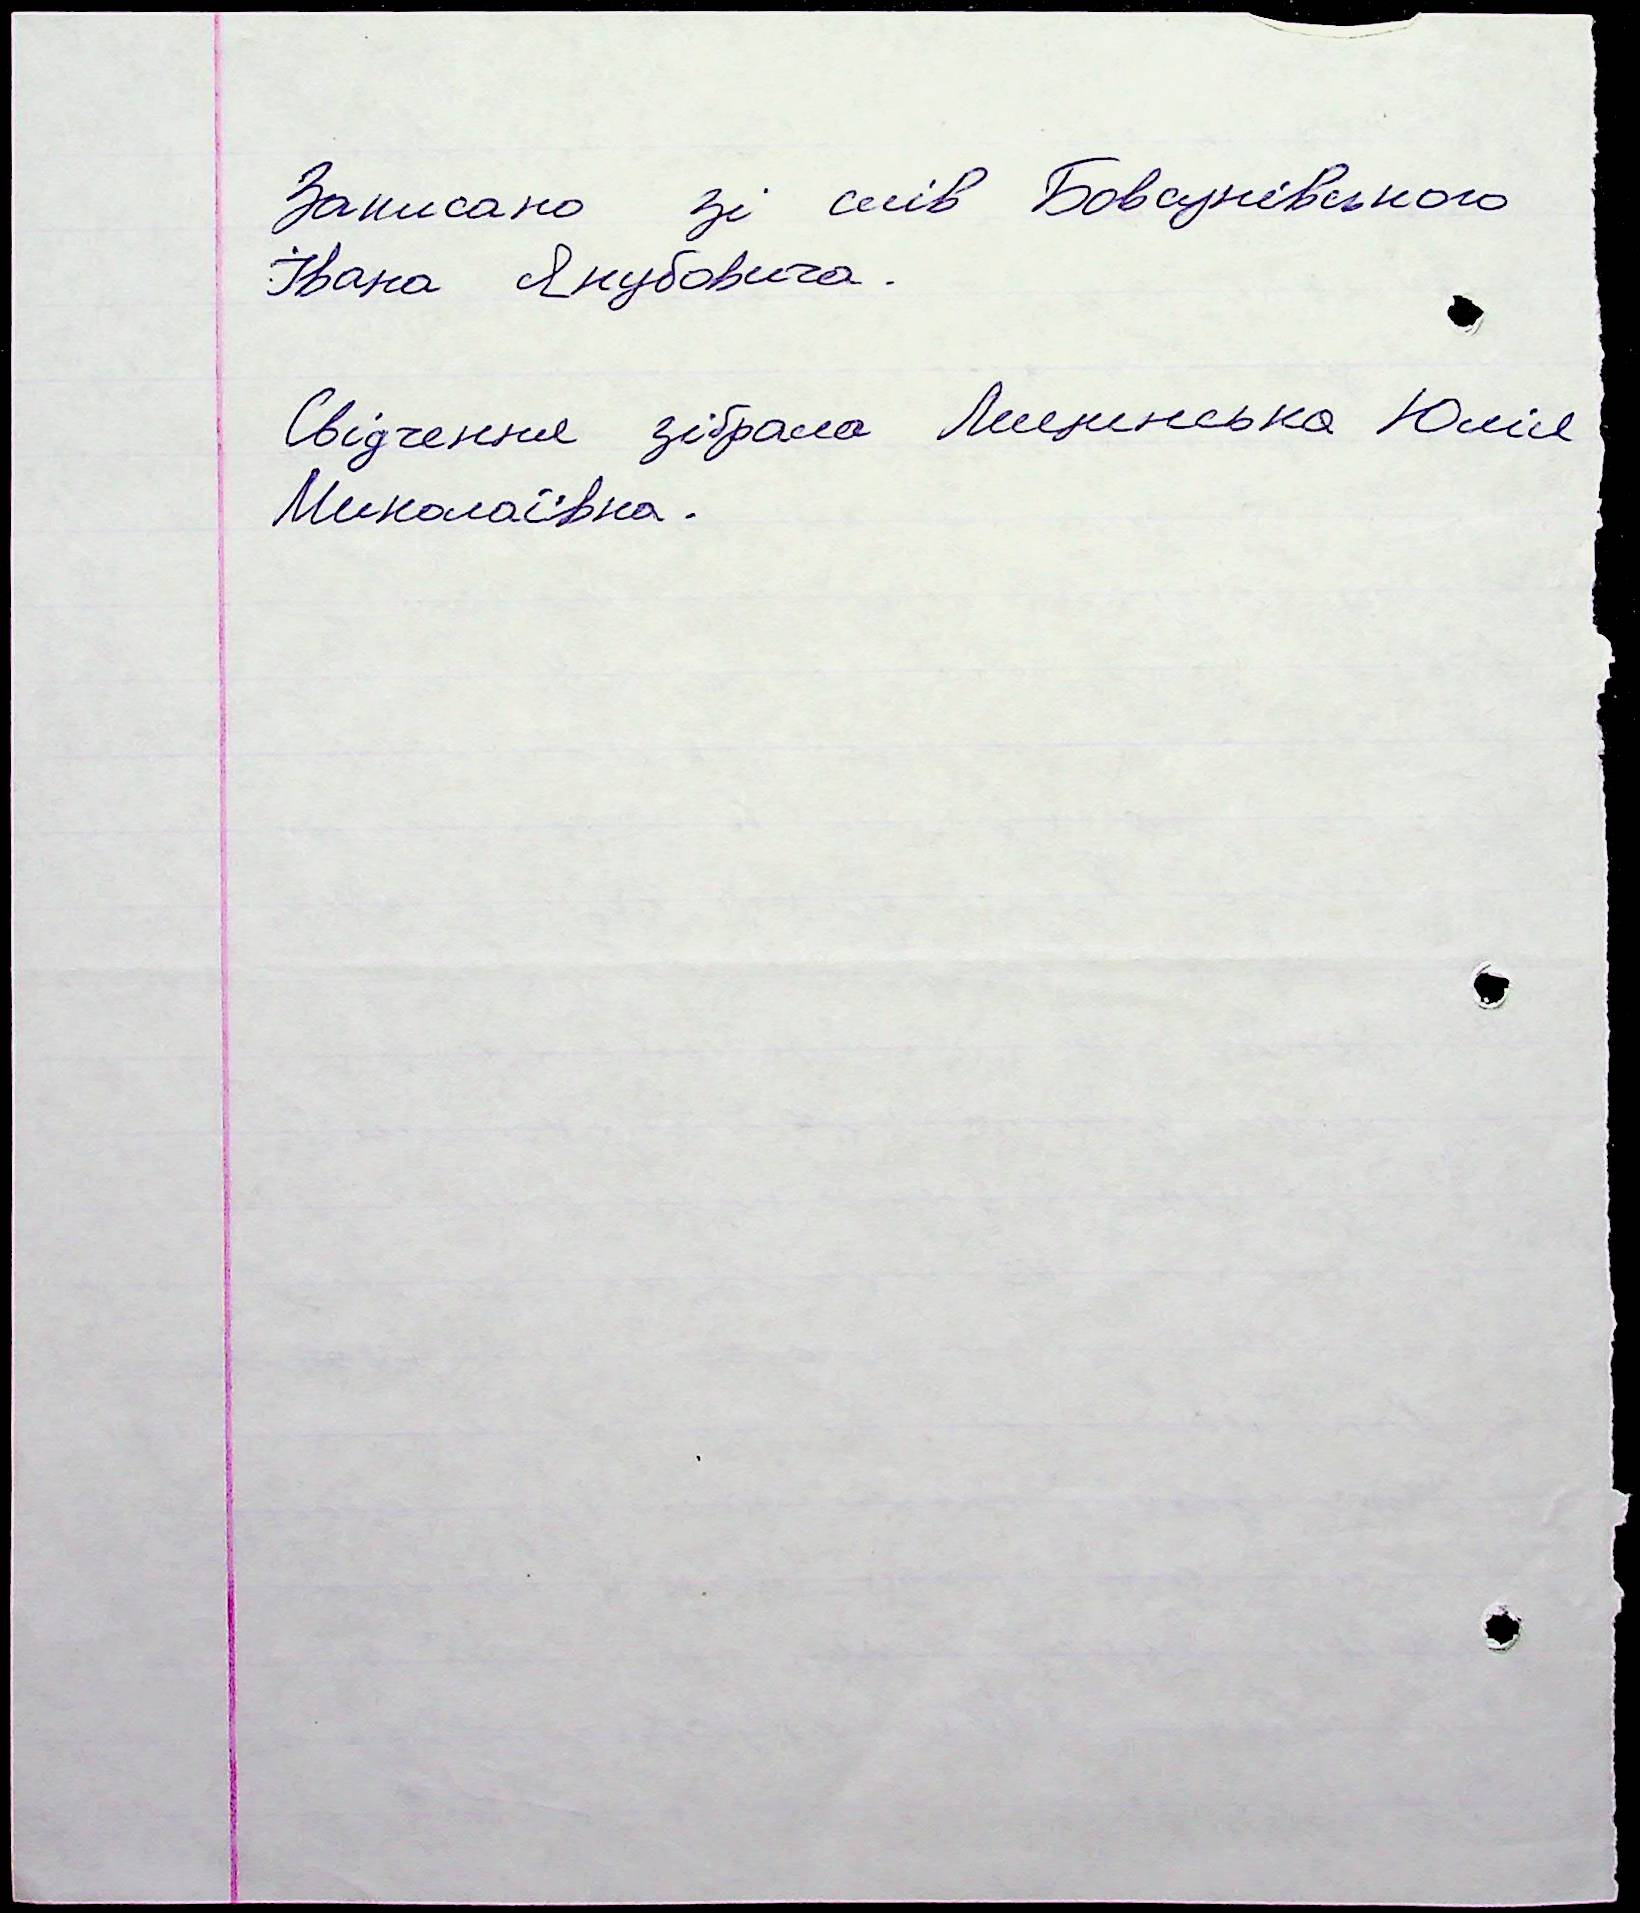 Записано зі слів Бовсунівського
Івана Якубовича.
Свідчення зібрала Лищинська Юлія
Миколаївна.